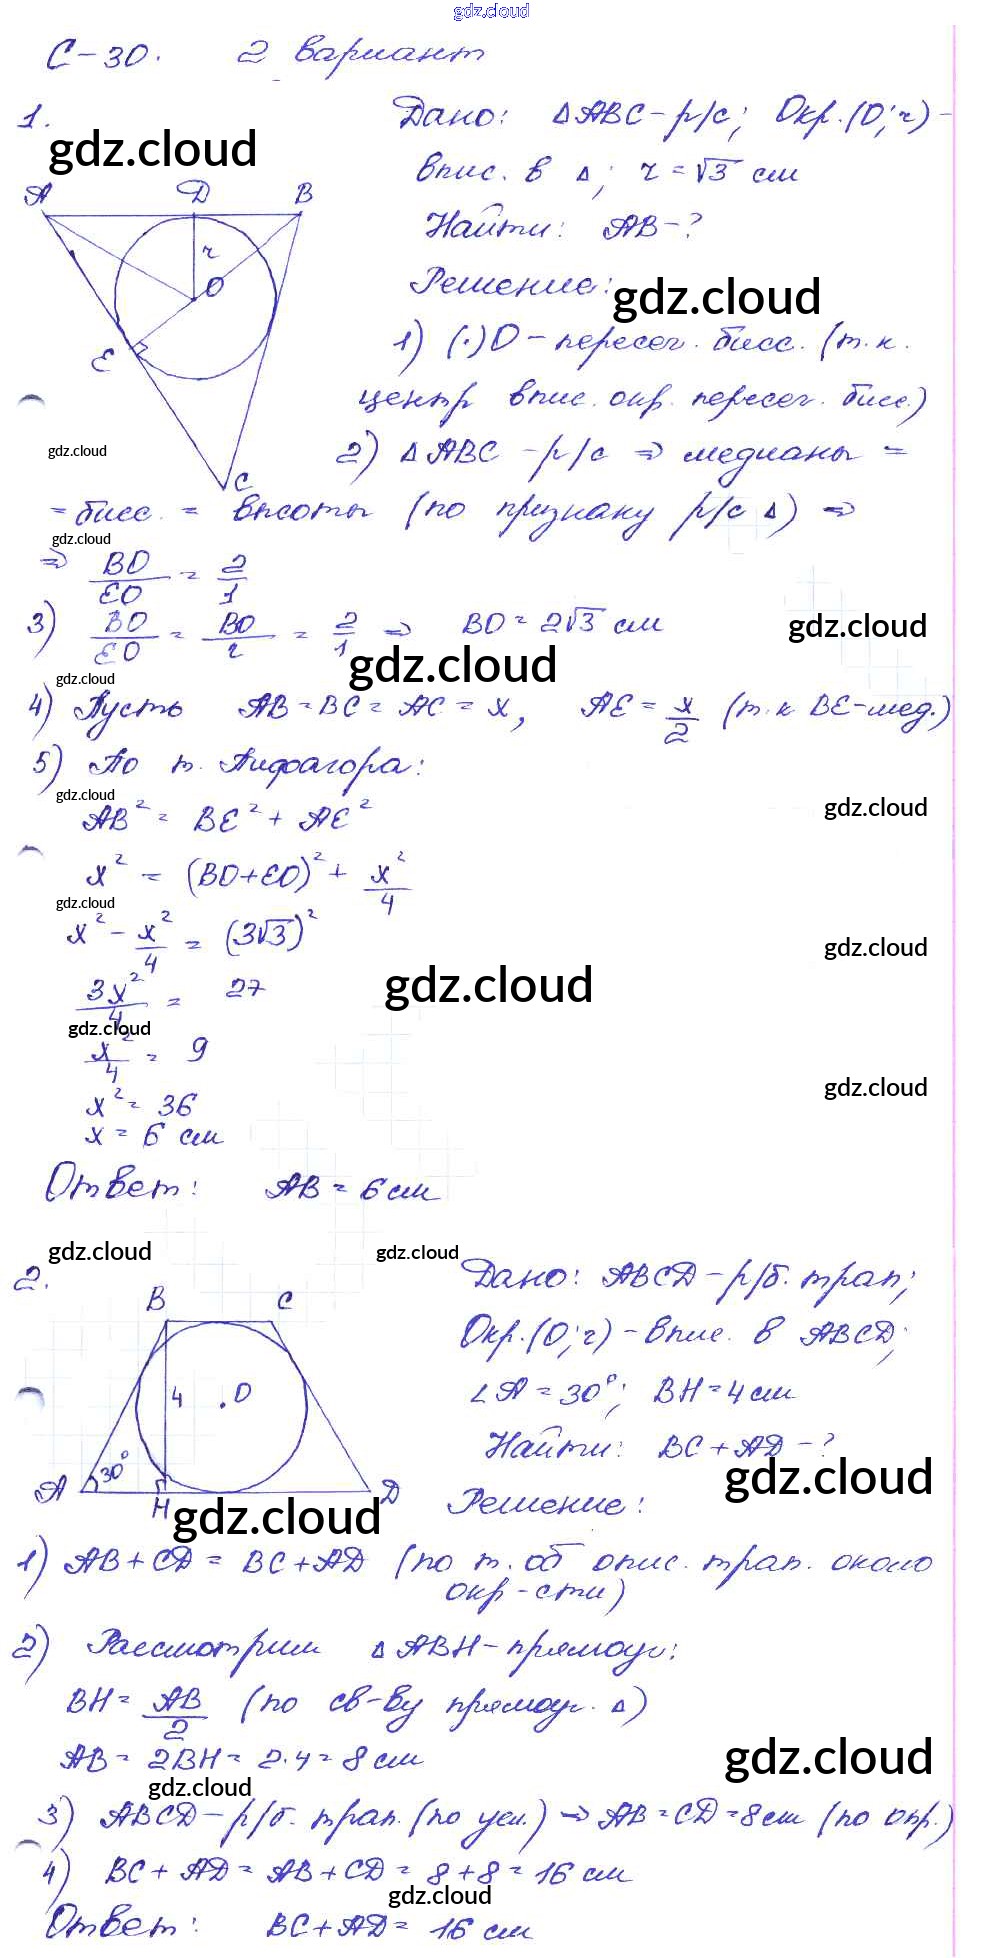 gdz.cloud
С-30. 2 вариант
1.
gdz.cloud
A D B
r
O
E
C
Дано: Δ ABC - р/с; Окр.(O; r) -
впис. в Δ; r = √3 см
Найти: AB - ?
Решение:
gdz.cloud
1) (·) O - пересеч. бисс. (т.к.
центр впис. окр. пересеч. бисс.)
gdz.cloud
2) Δ ABC - р/с ⇒ медианы =
= бисс. = высоты (по признаку р/с Δ) ⇒
gdz.cloud
⇒ BO/EO = 2/1
3) BO/EO = BO/r = 2/1 ⇒ BO = 2√3 см
gdz.cloud
gdz.cloud
gdz.cloud
4) Пусть AB = BC = AC = x, AE = x/2 (т.к BE-мед.)
5) По т. Пифагора:
gdz.cloud
gdz.cloud
AB² = BE² + AE²
x² = (BO+EO)² + x²/4
gdz.cloud
x² - x²/4 = (3√3)²
gdz.cloud
3x²/4 = 27
gdz.cloud
gdz.cloud
x²/4 = 9
gdz.cloud
x² = 36
x = 6 см
Ответ: AB = 6 см
gdz.cloud
gdz.cloud
2.
B C
4 O
30°
A H D
Дано: ABCD - р/б. трап;
Окр.(O; r) - впис. в ABCD;
∠A = 30°; BH = 4 см
Найти: BC + AD - ?
gdz.cloud
Решение:
gdz.cloud
1) AB + CD = BC + AD (по т. об опис. трап. около
окр-сти)
2) Рассмотрим Δ ABH - прямоуг:
BH = AB/2 (по св-ву прямоуг. Δ)
AB = 2BH = 2·4 = 8 см
gdz.cloud
gdz.cloud
3) ABCD - р/б. трап. (по усл.) ⇒ AB = CD = 8 см (по опр.)
4) BC + AD = AB + CD = 8 + 8 = 16 см
gdz.cloud
Ответ: BC + AD = 16 см